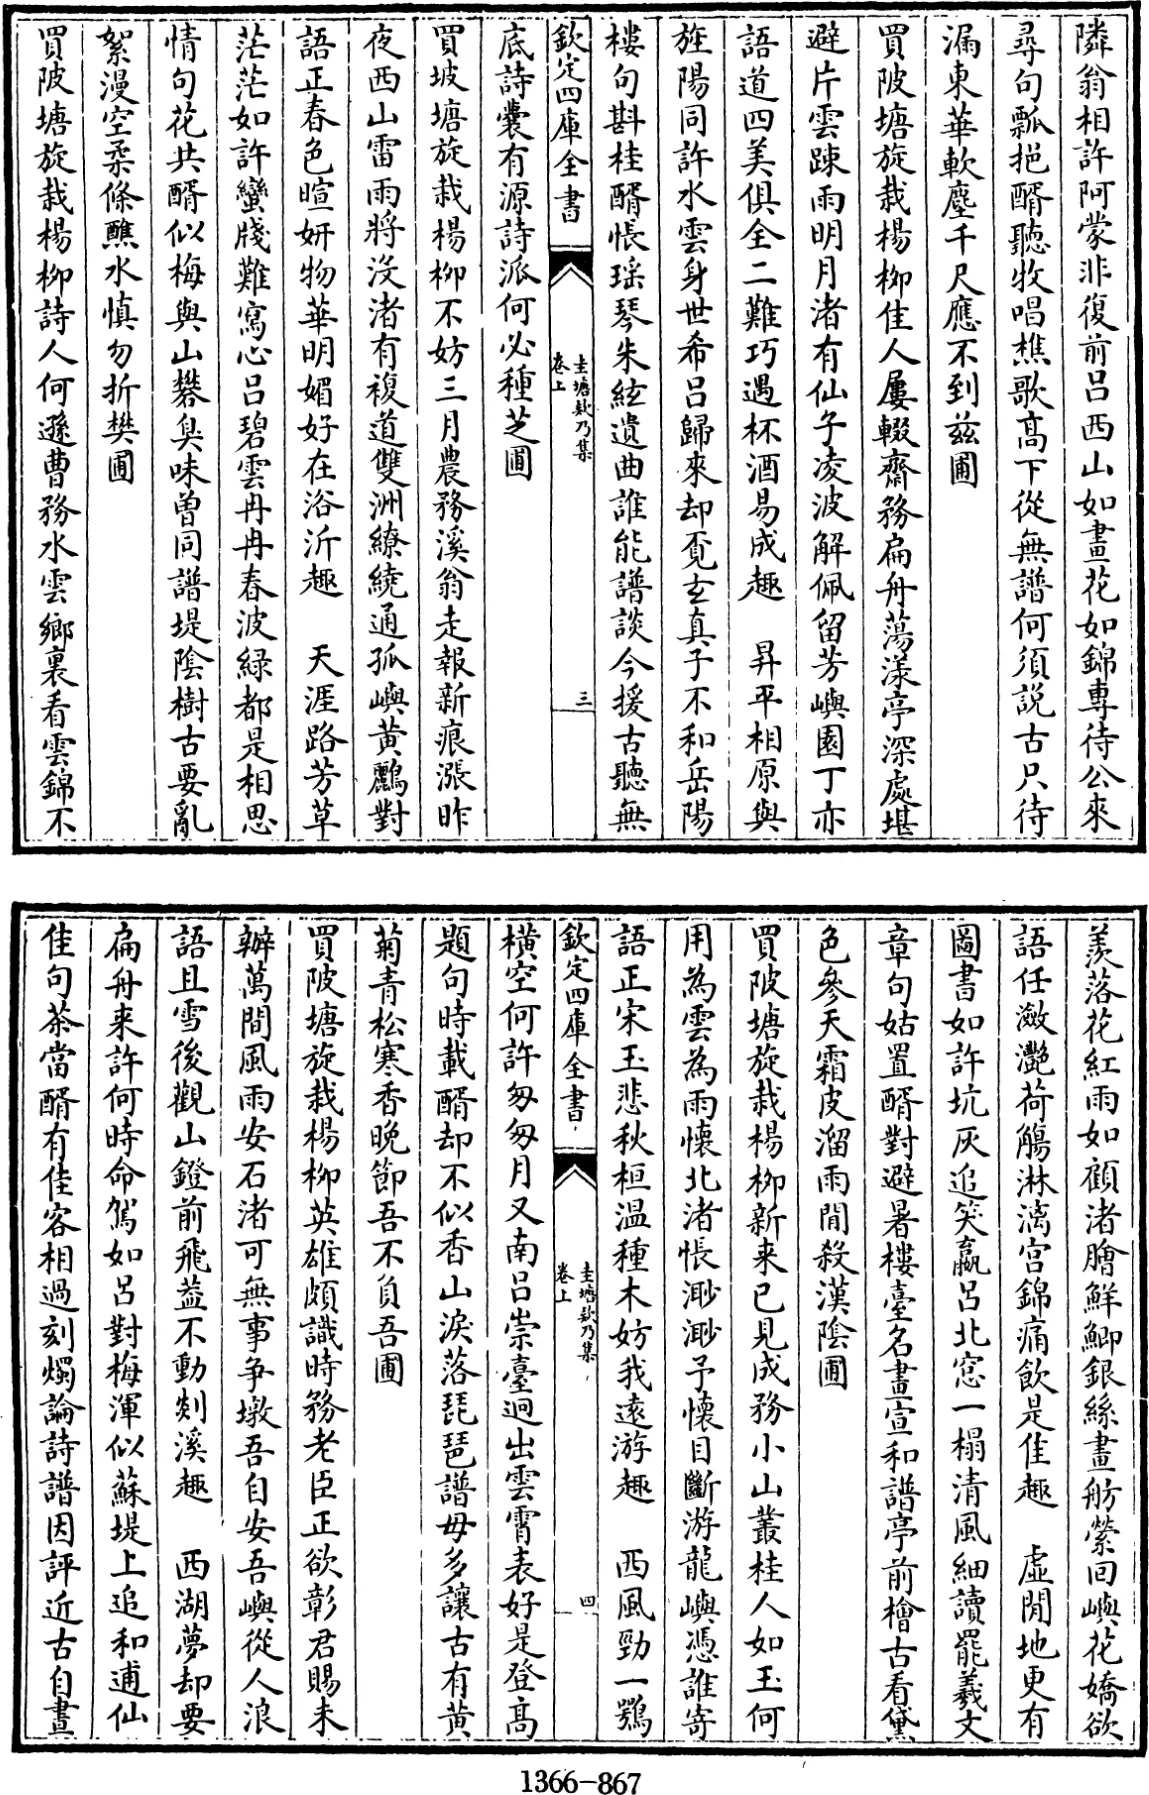 隣翁相許阿蒙非復前吕西山如畫花如錦專待公來
尋句瓢挹醑聽牧唱樵歌高下從無譜何須説古只待
漏東華軟塵千尺應不到兹圃
買陂塘旋栽楊柳佳人屢輟齋務扁舟蕩漾亭深處堪
避片雲踈雨明月渚有仙子凌波解佩留芳嶼園丁亦
語道四美俱全二難巧遇杯酒易成趣　昇平相原與
旌陽同許水雲身世希吕歸來却覔𤣥真子不和岳陽
樓句斟桂醑悵瑶琴朱絃遺曲誰能譜談今援古聽無
欽定四庫全書
圭塘欸乃集
卷上
三
底詩囊有源詩派何必種芝圃
買坡塘旋栽楊柳不妨三月農務溪翁走報新痕漲昨
夜西山雷雨將沒渚有複道雙洲繚繞通孤嶼黄鸝對
語正春色暄妍物華明媚好在浴沂趣　天涯路芳草
茫茫如許蠻牋難寫心吕碧雲冉冉春波緑都是相思
情句花共醑似梅與山礬臭味曽同譜堤陰樹古要亂
絮漫空柔條蘸水慎勿折樊圃
買陂塘旋栽楊柳詩人何遜曹務水雲鄉裏看雲錦不
羨落花紅雨如顧渚膾鮮鯽銀絲畫舫縈回嶼花嬌欲
語任瀲灔荷觴淋漓宫錦痛飲是佳趣　虚閒地更有
圖書如許坑灰追笑嬴吕北窓一榻清風細讀罷羲文
章句姑置醑對避暑樓臺名畫宣和譜亭前檜古看黛
色參天霜皮溜雨閒殺漢陰圃
買陂塘旋栽楊柳新来已見成務小山叢桂人如玉何
用為雲為雨懷北渚悵渺渺予懷目斷游龍嶼憑誰寄
語正宋玉悲秋桓温種木妨我遠游趣　西風勁一鶚
欽定四庫全書
圭塘欸乃集
卷上
四
橫空何許匆匆月又南吕崇臺迥出雲霄表好是登高
題句時載醑却不似香山淚落琵琶譜毋多讓古有黄
菊青松寒香晚節吾不負吾圃
買陂塘旋栽楊柳英雄頗識時務老臣正欲彰君賜未
辦萬間風雨安石渚可無事爭墩吾自安吾嶼從人浪
語且雪後觀山鐙前飛葢不動剡溪趣　西湖夢却要
扁舟来許何時命駕如吕對梅渾似蘇堤上追和逋仙
佳句茶當醑有佳客相過刻燭論詩譜因評近古自畫
1366-867